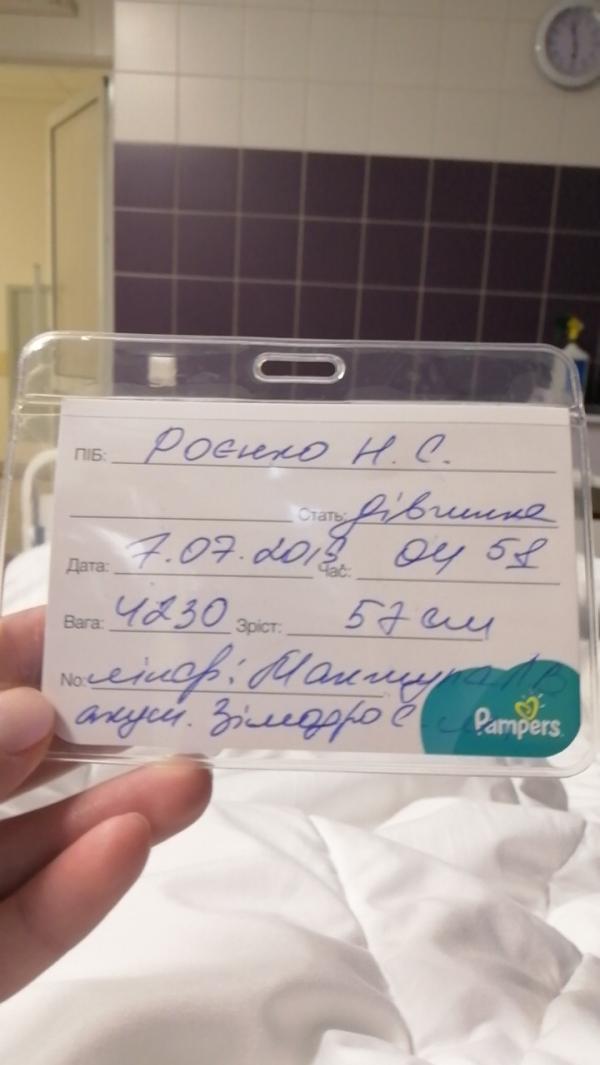 ПІБ: Роєнко Н. С.
Стать: дівчинка
Дата: 7.07.2019 Час: 04 58
Вага: 4230 Зріст: 57 см
No: лікар:
акуш.
Pampers